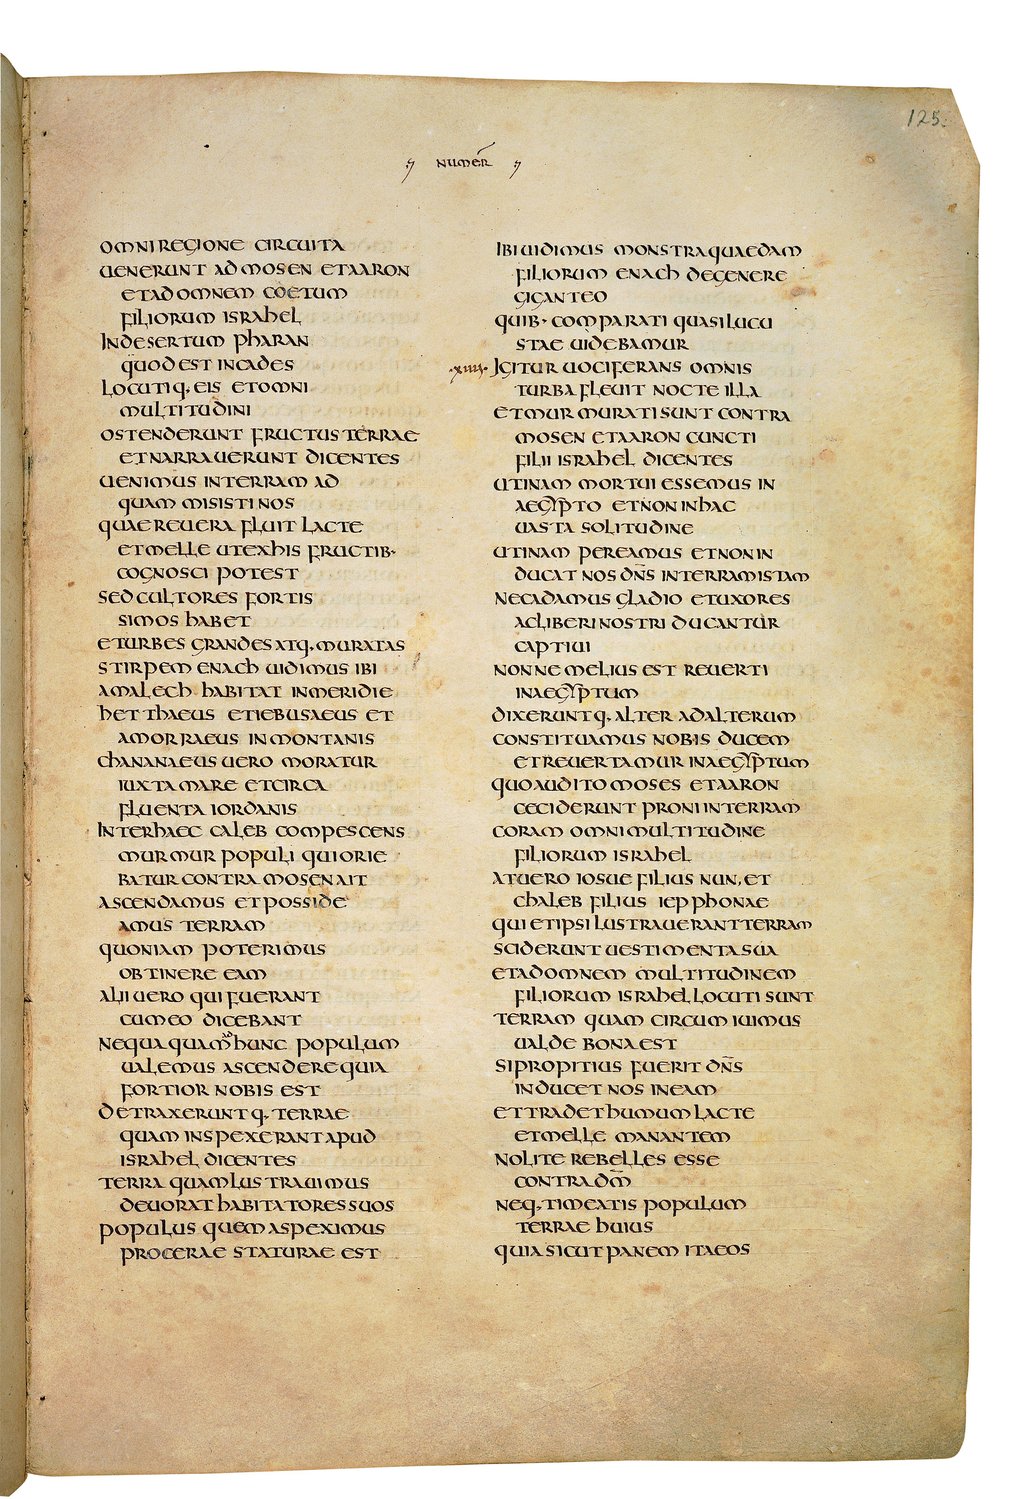 125.
NUMER̄
OMNI REGIONE CIRCUITA
UENERUNT AD MOSEN ET AARON
ET AD OMNEM COETUM
FILIORUM ISRAHEL
IN DESERTUM PHARAN
QUOD EST IN CADES
LOCUTIQ· EIS ET OMNI
MULTITUDINI
OSTENDERUNT FRUCTUS TERRAE
ET NARRAUERUNT DICENTES
UENIMUS IN TERRAM AD
QUAM MISISTI NOS
QUAE REUERA FLUIT LACTE
ET MELLE UT EX HIS FRUCTIB·
COGNOSCI POTEST
SED CULTORES FORTIS
SIMOS HABET
ET URBES GRANDES ATQ· MURATAS
STIRPEM ENACH UIDIMUS IBI
AMALECH HABITAT IN MERIDIE
HETTHAEUS ET IEBUSAEUS ET
AMORRAEUS IN MONTANIS
CHANANAEUS UERO MORATUR
IUXTA MARE ET CIRCA
FLUENTA IORDANIS
INTER HAEC CALEB COMPESCENS
MURMUR POPULI QUI ORIE
BATUR CONTRA MOSEN AIT
ASCENDAMUS ET POSSIDE
AMUS TERRAM
QUONIAM POTERIMUS
OBTINERE EAM
ALII UERO QUI FUERANT
CUM EO DICEBANT
NEQUAQUAM AD HUNC POPULUM
UALEMUS ASCENDERE QUIA
FORTIOR NOBIS EST
DETRAXERUNTQ· TERRAE
QUAM INSPEXERANT APUD
ISRAHEL DICENTES
TERRA QUAM LUSTRAUIMUS
DEUORAT HABITATORES SUOS
POPULUS QUEM ASPEXIMUS
PROCERAE STATURAE EST
IBI UIDIMUS MONSTRA QUAEDAM
FILIORUM ENACH DE GENERE
GIGANTEO
QUIB· COMPARATI QUASI LUCU
STAE UIDEBAMUR
·XIIII· IGITUR UOCIFERANS OMNIS
TURBA FLEUIT NOCTE ILLA
ET MURMURATI SUNT CONTRA
MOSEN ET AARON CUNCTI
FILII ISRAHEL DICENTES
UTINAM MORTUI ESSEMUS IN
AEGYPTO ET NON IN HAC
UASTA SOLITUDINE
UTINAM PEREAMUS ET NON IN
DUCAT NOS DN̄S IN TERRAM ISTAM
NE CADAMUS GLADIO ET UXORES
AC LIBERI NOSTRI DUCANTUR
CAPTIUI
NONNE MELIUS EST REUERTI
IN AEGYPTUM
DIXERUNTQ· ALTER AD ALTERUM
CONSTITUAMUS NOBIS DUCEM
ET REUERTAMUR IN AEGYPTUM
QUO AUDITO MOSES ET AARON
CECIDERUNT PRONI IN TERRAM
CORAM OMNI MULTITUDINE
FILIORUM ISRAHEL
AT UERO IOSUE FILIUS NUN, ET
CHALEB FILIUS IEPPHONAE
QUI ET IPSI LUSTRAUERANT TERRAM
SCIDERUNT UESTIMENTA SUA
ET AD OMNEM MULTITUDINEM
FILIORUM ISRAHEL LOCUTI SUNT
TERRAM QUAM CIRCUMIUIMUS
UALDE BONA EST
SI PROPITIUS FUERIT DN̄S
INDUCET NOS IN EAM
ET TRADET HUMUM LACTE
ET MELLE MANANTEM
NOLITE REBELLES ESSE
CONTRA DM̄
NEQ· TIMEATIS POPULUM
TERRAE HUIUS
QUIA SICUT PANEM ITA EOS